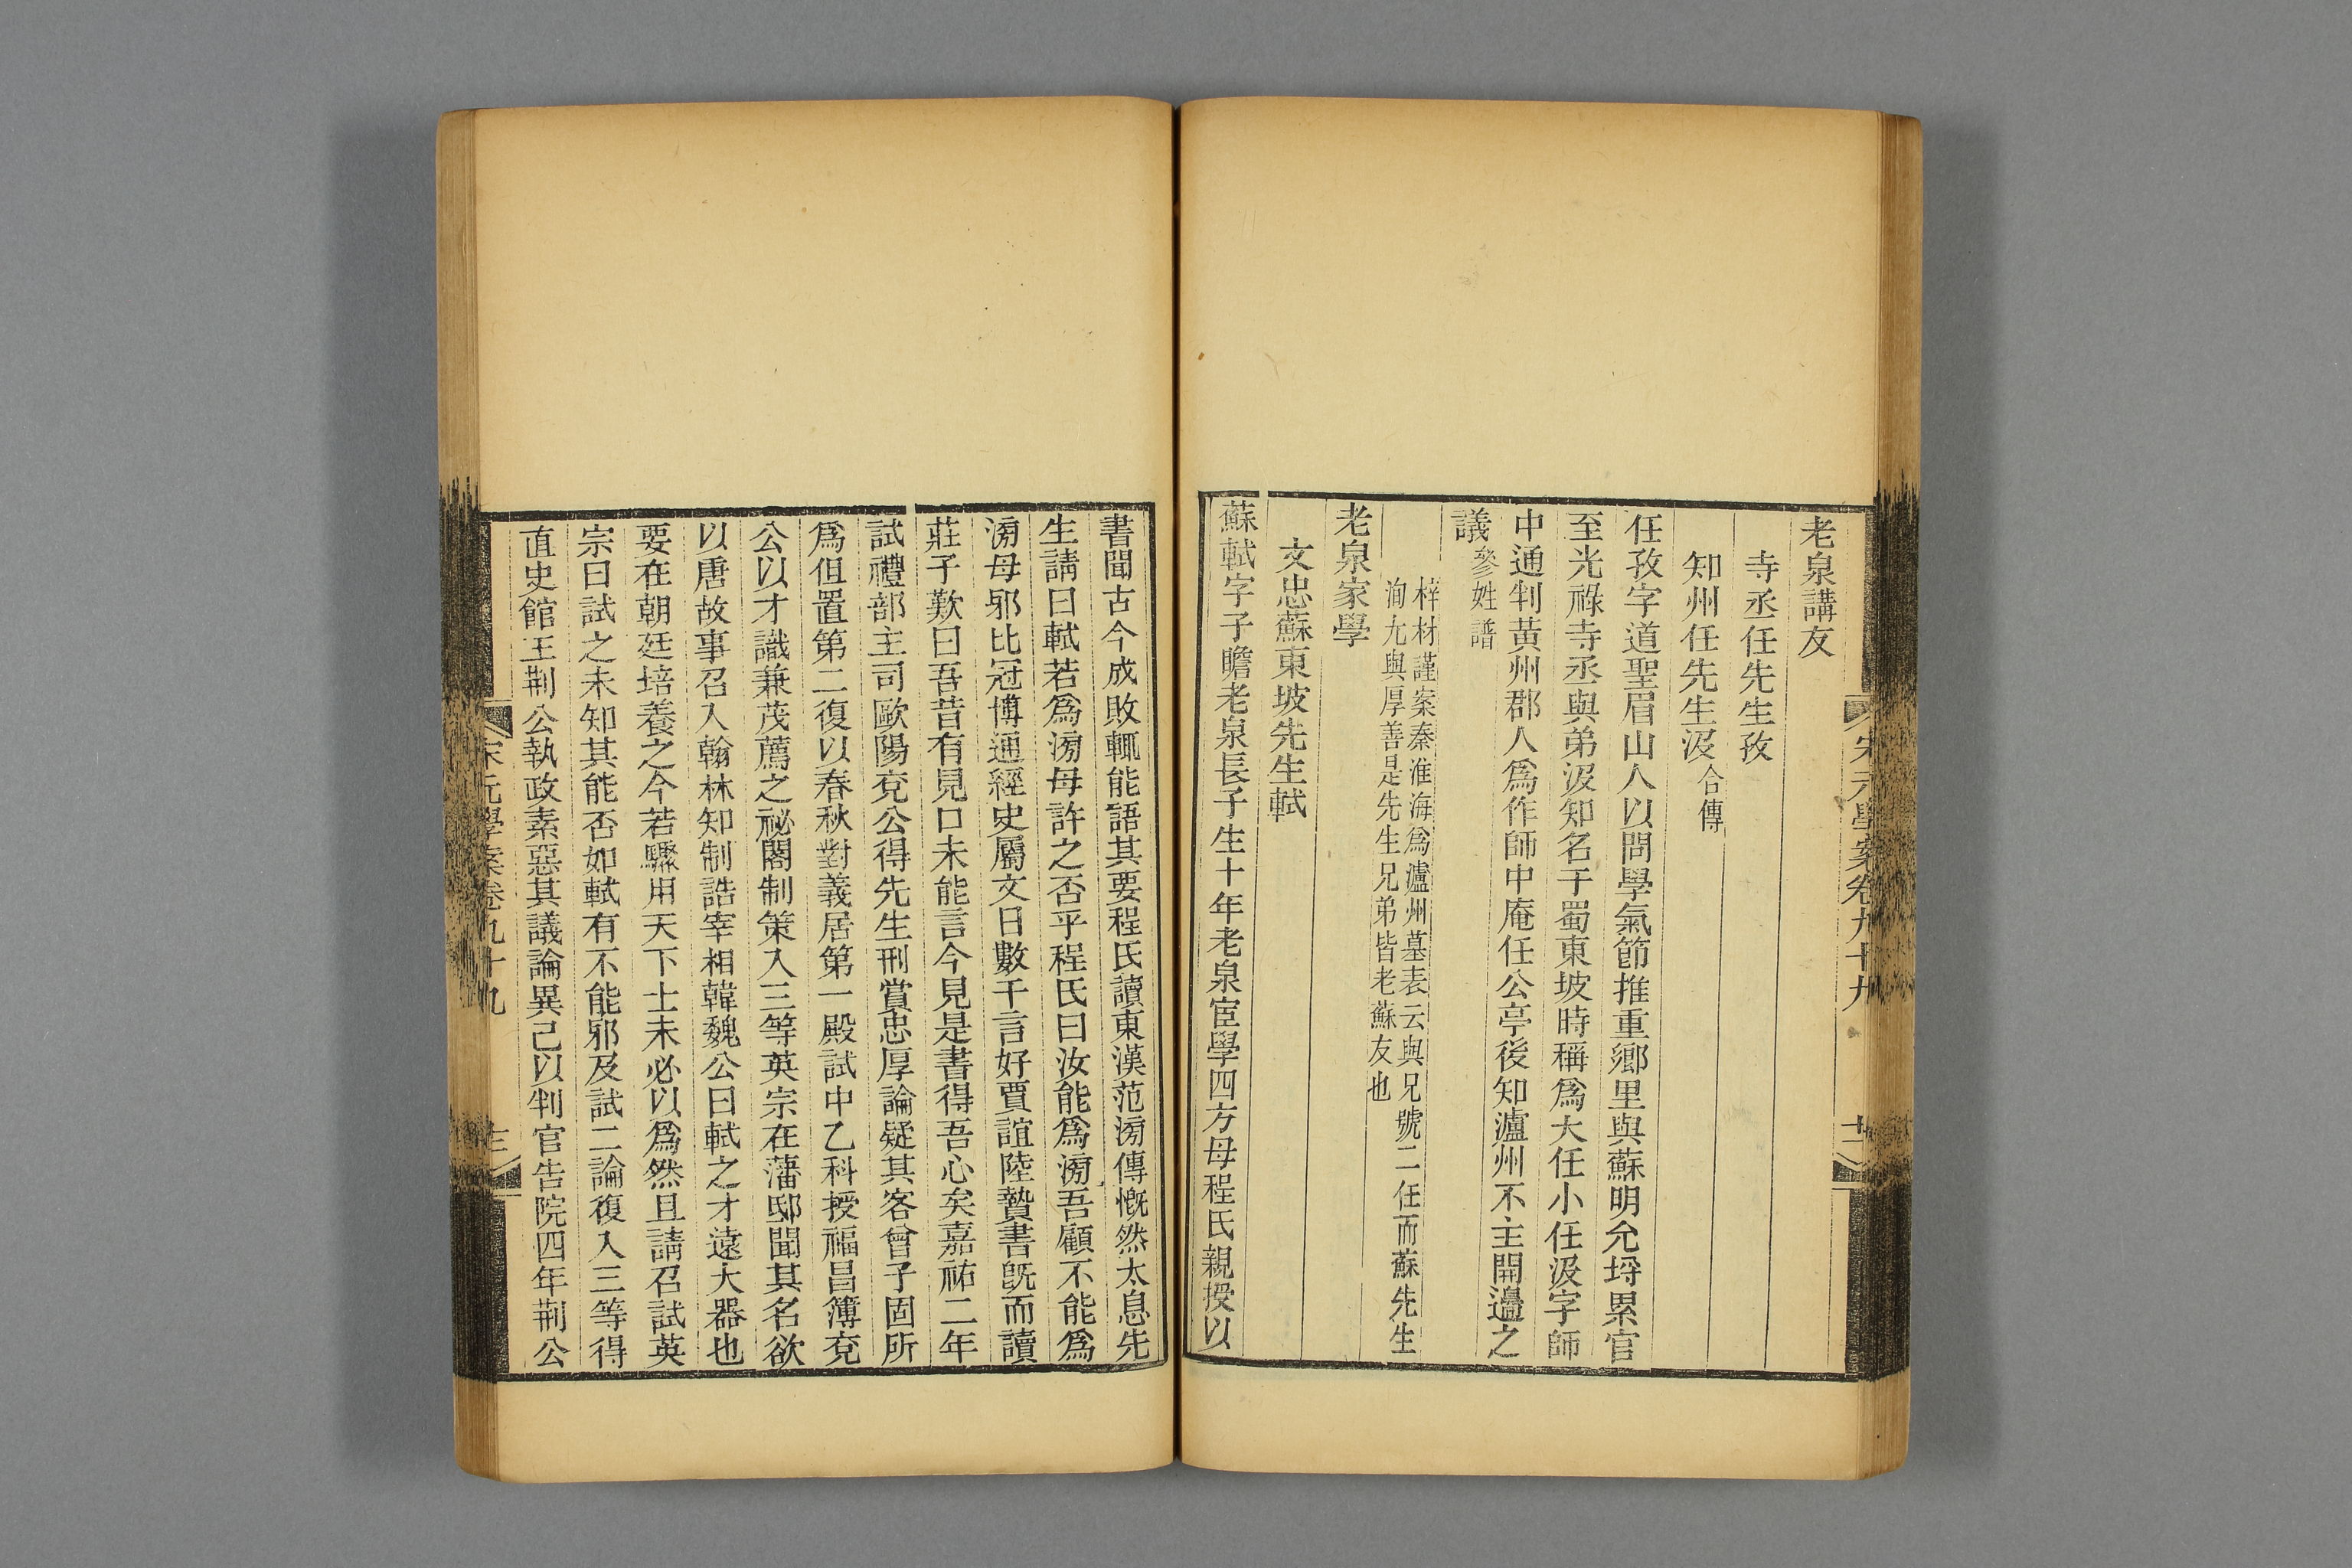 老泉講友
寺丞任先生孜
知州任先生汲合傳
任孜字道聖眉山人以問學氣節推重鄉里與蘇明允埒累官
至光祿寺丞與弟汲知名于蜀東坡時稱為大任小任汲字師
中通判黃州郡人為作師中庵任公亭後知瀘州不主開邊之
議參姓譜
梓材謹案秦淮海爲瀘州墓表云與兄號二任而蘇先生
洵尤與厚善是先生兄弟皆老蘇友也
老泉家學
文忠蘇東坡先生軾
蘇軾字子瞻老泉長子生十年老泉宦學四方母程氏親授以
宋元學案卷九十九
書聞古今成敗輒能語其要程氏讀東漢范滂傳慨然太息先
生請曰軾若爲滂母許之否乎程氏曰汝能爲滂吾顧不能爲
滂母邪比冠博通經史屬文日數千言好賈誼陸贄書既而讀
莊子歎曰吾昔有見口未能言今見是書得吾心矣嘉祐二年
試禮部主司歐陽兗公得先生刑賞忠厚論疑其客曾子固所
爲但置第二復以春秋對義居第一殿試中乙科授福昌簿兗
公以才識兼茂薦之祕閣制策入三等英宗在藩邸聞其名欲
以唐故事召入翰林知制誥宰相韓魏公曰軾之才遠大器也
要在朝廷培養之今若驟用天下士未必以爲然且請召試英
宗曰試之未知其能否如軾有不能邪及試二論復入三等得
直史館王荆公執政素惡其議論異己以判官告院四年荆公
宋元學案卷九十九